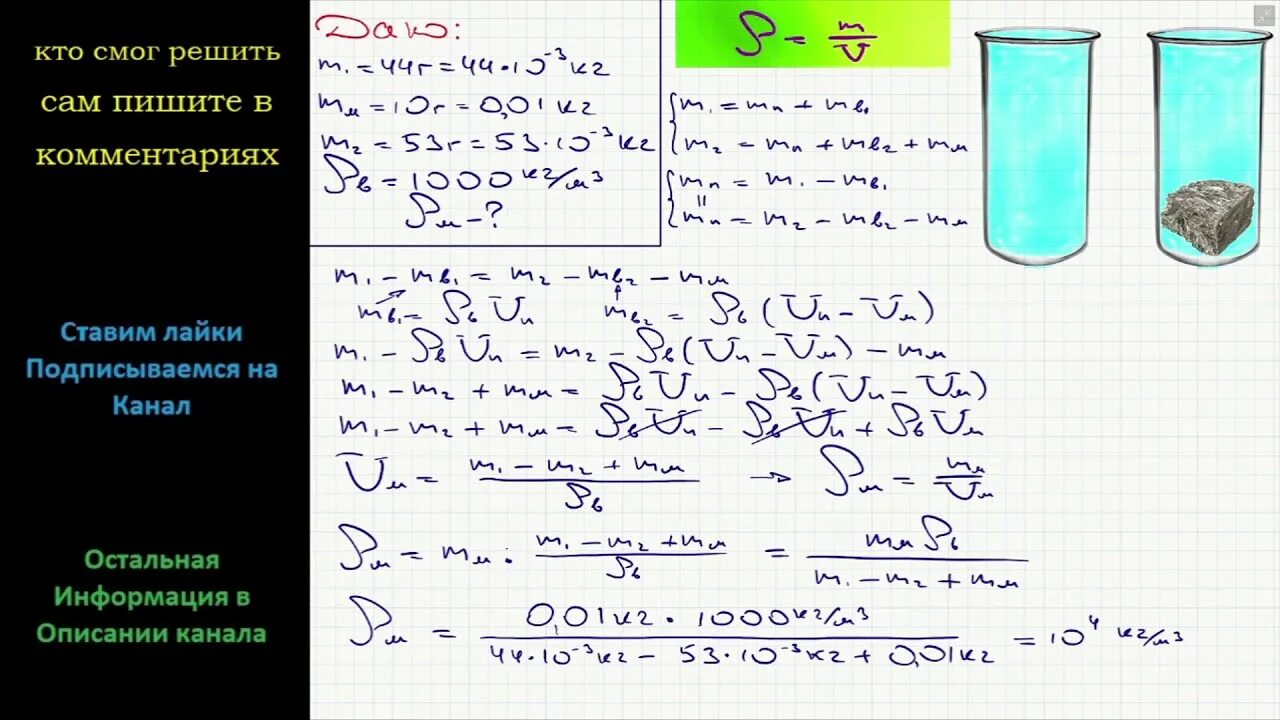 кто смог решить
сам пишите в
комментариях
Ставим лайки
Подписываемся на
Канал
Остальная
Информация в
Описании канала
Дано:
m₁ = 44г = 44·10⁻³ кг
mм = 10г = 0,01 кг
m₂ = 53г = 53·10⁻³ кг
ρв = 1000 кг/м³
ρм - ?
ρ = m/V
m₁ = mп + mв₁
m₂ = mп + mв₂ + mм
mп = m₁ - mв₁
=
mп = m₂ - mв₂ - mм
m₁ - mв₁ = m₂ - mв₂ - mм
mв₁ = ρв Vп mв₂ = ρв (Vп - Vм)
m₁ - ρв Vп = m₂ - ρв (Vп - Vм) - mм
m₁ - m₂ + mм = ρв Vп - ρв (Vп - Vм)
m₁ - m₂ + mм = ρв Vп - ρв Vп + ρв Vм
Vм = (m₁ - m₂ + mм)/ρв → ρм = mм/Vм
ρм = mм : (m₁ - m₂ + mм)/ρв = mм ρв/(m₁ - m₂ + mм)
ρм = 0,01 кг · 1000 кг/м³/(44·10⁻³ кг - 53·10⁻³ кг + 0,01 кг) = 10⁴ кг/м³